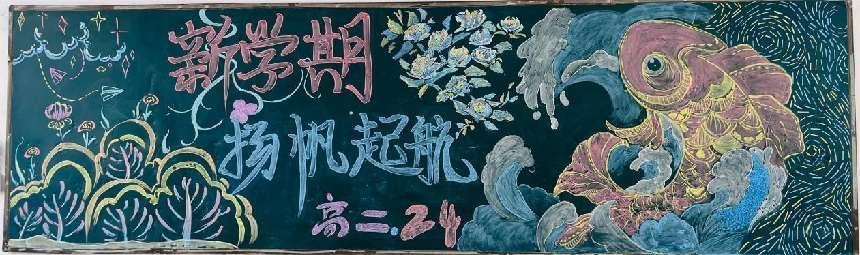 新学期
扬帆起航
高二.24